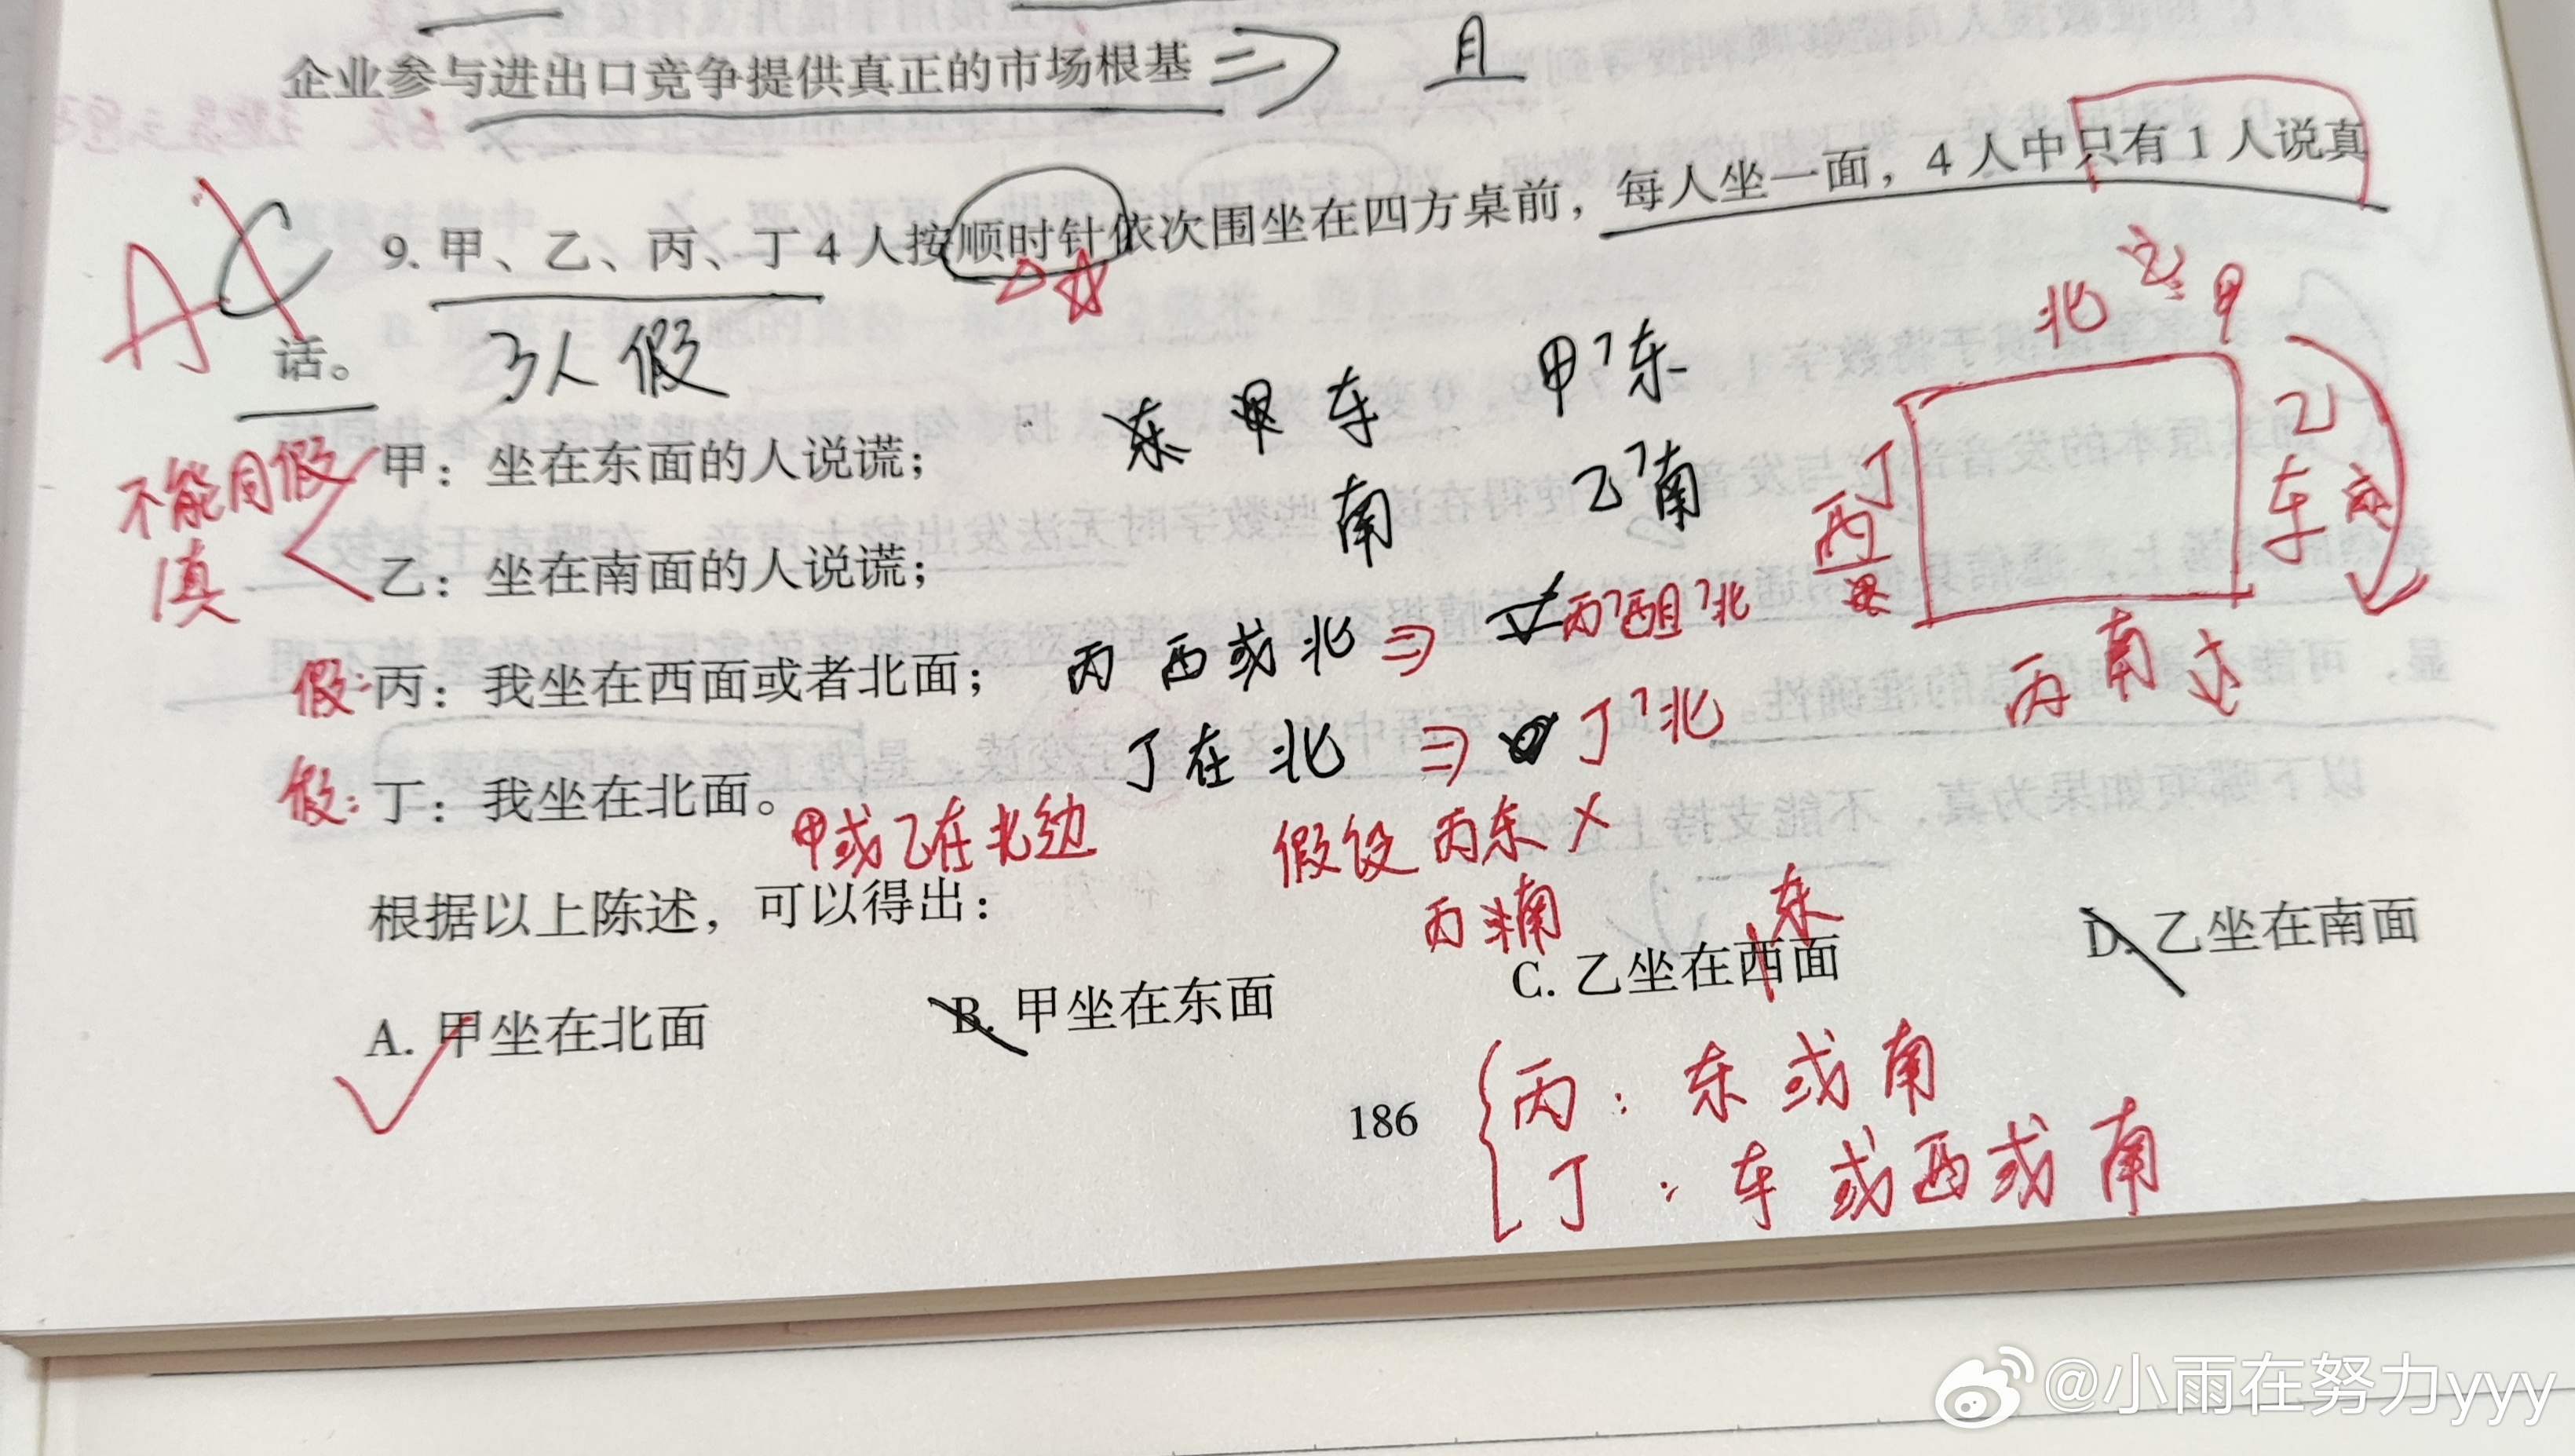 企业参与进出口竞争提供真正的市场根基 => 且
AC
9. 甲、乙、丙、丁 4 人按顺时针依次围坐在四方桌前，每人坐一面，4 人中只有 1 人说真
话。 3人假
不能同假
真
甲：坐在东面的人说谎；
乙：坐在南面的人说谎；
假: 丙：我坐在西面或者北面；
假: 丁：我坐在北面。
东 甲 东
南
甲¬东
乙¬南
丙 西或北 => 丙¬西且¬北
丁在北 => 丁¬北
北 甲
丁 西
乙 东
丙 南
甲或乙在北边
假设 丙东 ×
丙 南
根据以上陈述，可以得出：
A. 甲坐在北面
B. 甲坐在东面
东
C. 乙坐在西面
D. 乙坐在南面
186
丙: 东或南
丁: 东或西或南
@小雨在努力yyy